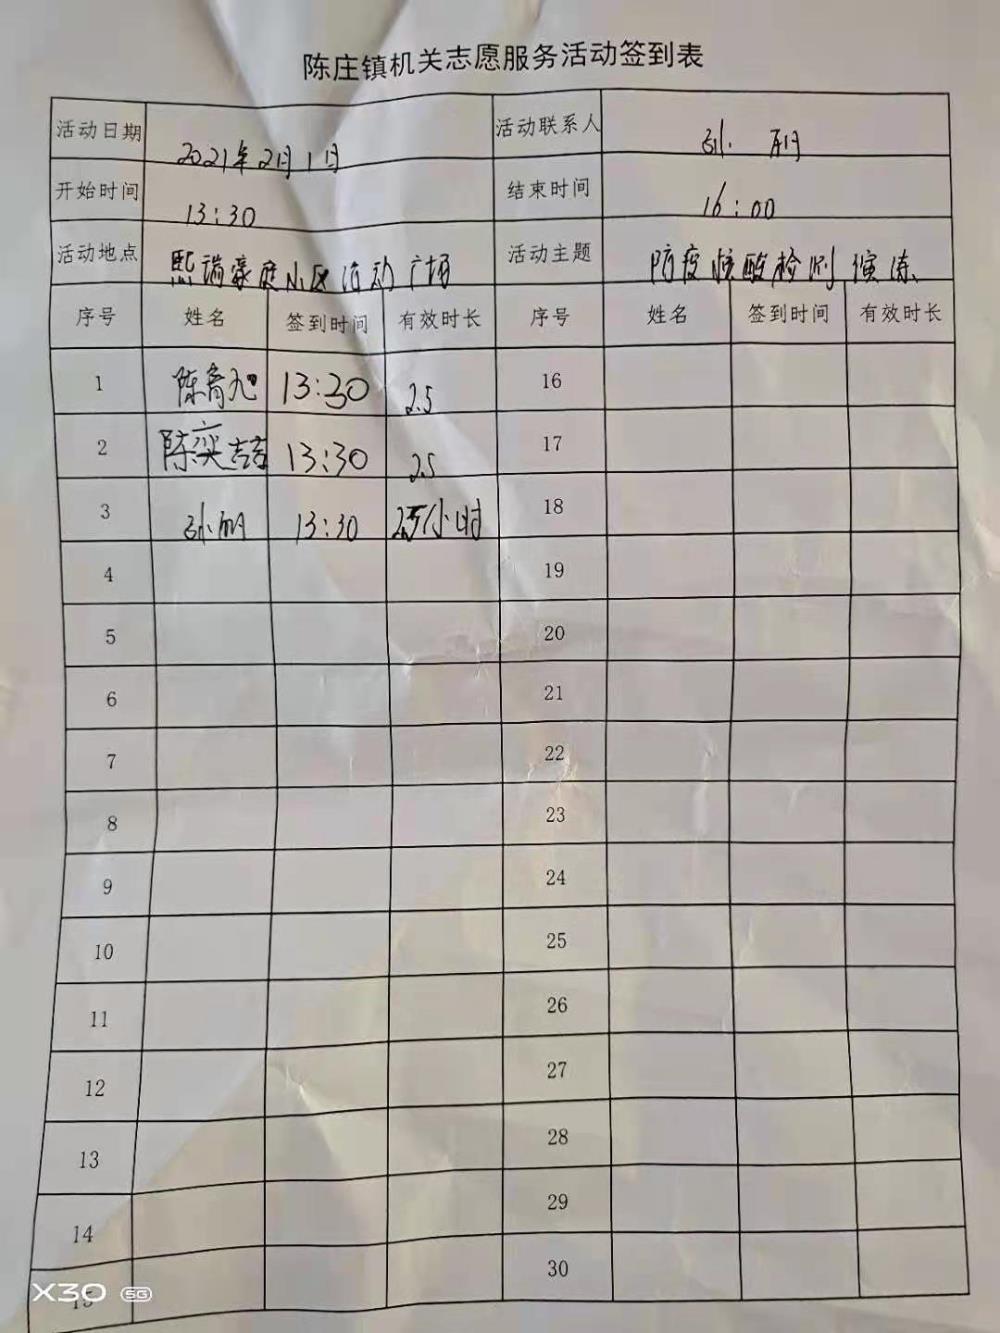 陈庄镇机关志愿服务活动签到表
活动日期 2021年2月1日 活动联系人 孙
开始时间 13:30 结束时间 16:00
活动地点 熙瑞豪庭小区活动广场 活动主题 防疫核酸检测演练
序号 姓名 签到时间 有效时长 序号 姓名 签到时间 有效时长
1 陈 13:30 2.5 16
2 陈奕喆 13:30 2.5 17
3 孙 13:30 2.5小时 18
4 19
5 20
6 21
7 22
8 23
9 24
10 25
11 26
12 27
13 28
14 29
15 30
X30 5G